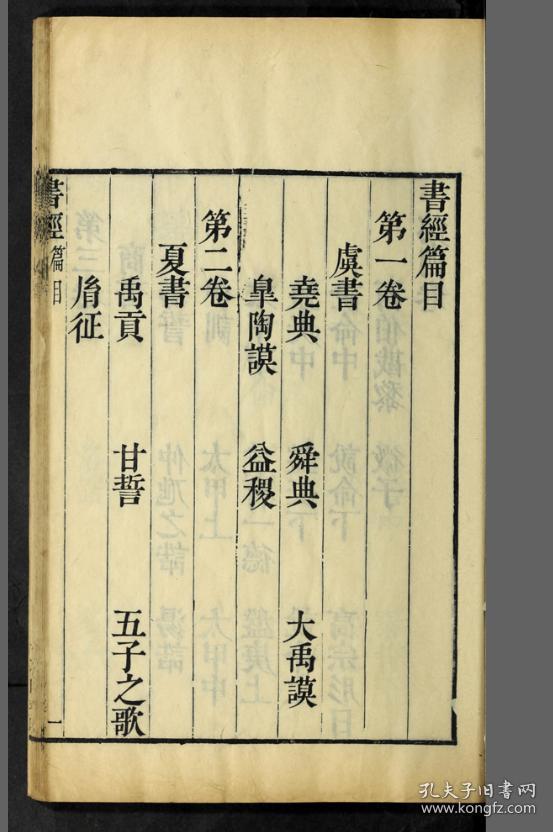 書經篇目
第一卷
虞書
堯典 舜典 大禹謨
皐陶謨 益稷
第二卷
夏書
禹貢 甘誓 五子之歌
胤征
書經篇目
一
孔夫子旧书网
www.kongfz.com